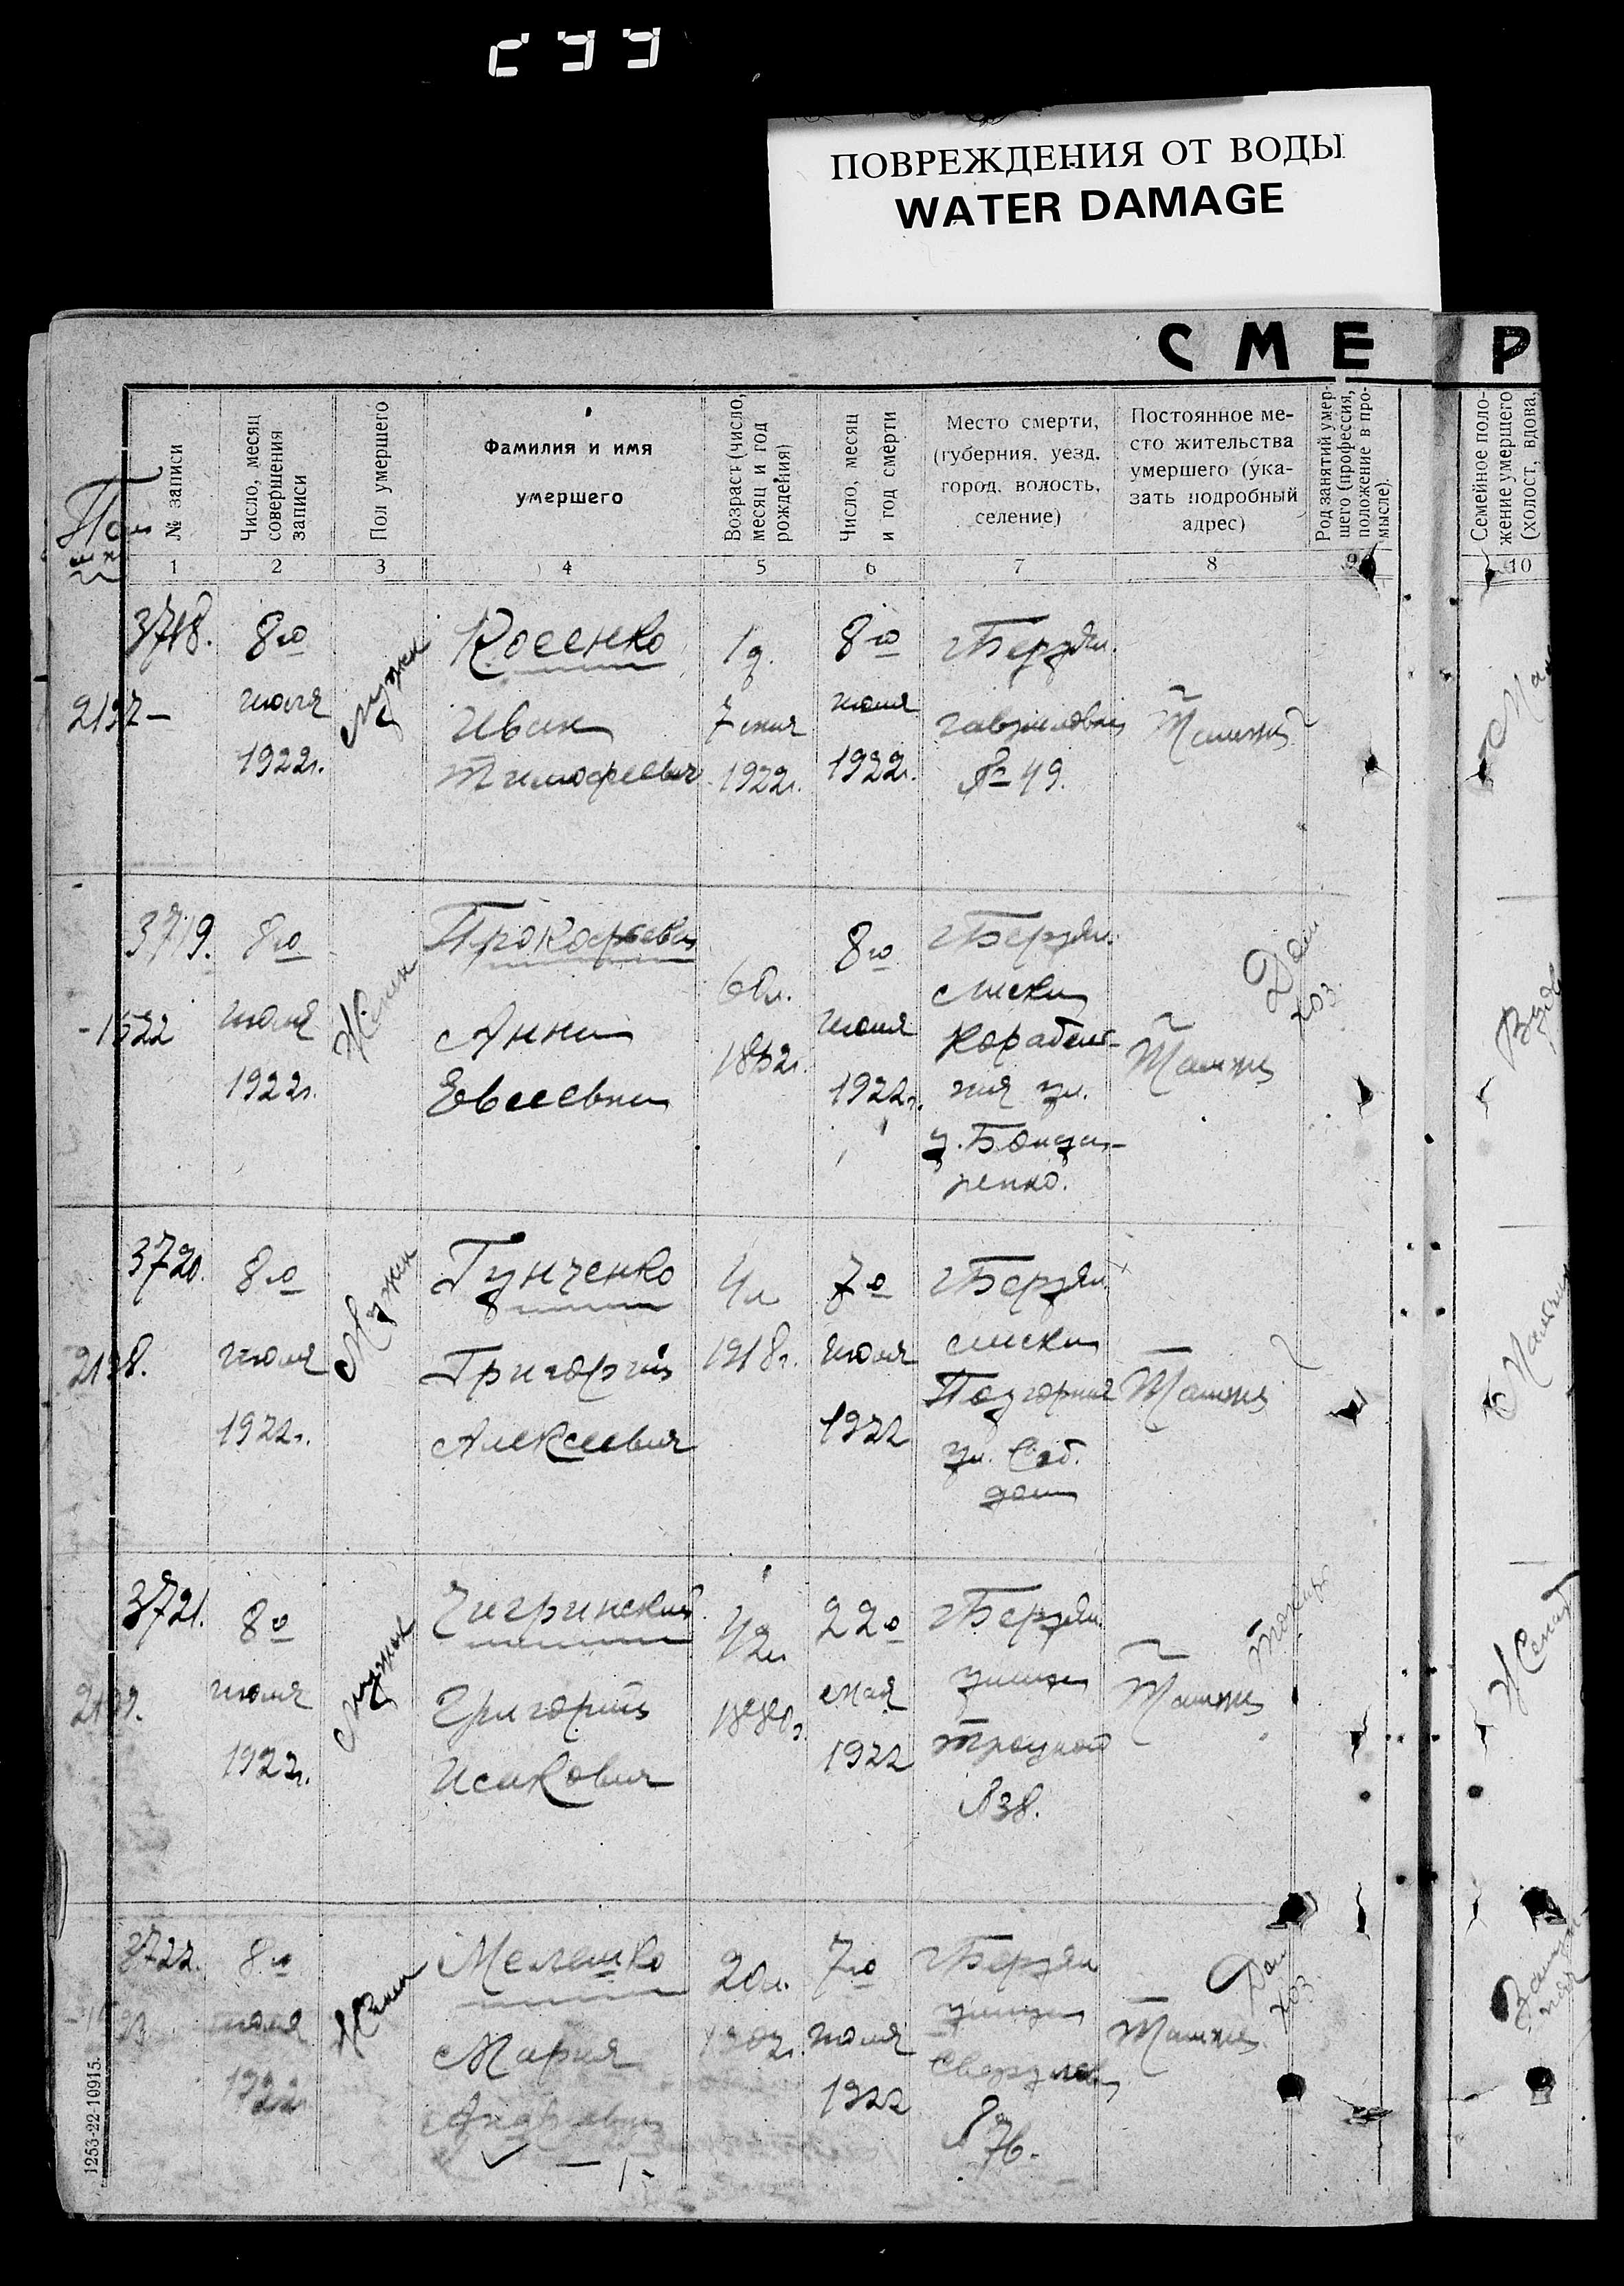 С 9 9
ПОВРЕЖДЕНИЯ ОТ ВОДЫ
WATER DAMAGE
СМЕ Р
№ записи
Число, месяц
совершения
записи
Пол умершего
Фамилия и имя
умершего
Возраст (число,
месяц и год
рождения)
Число, месяц
и год смерти
Место смерти,
(губерния, уезд,
город, волость,
селение)
Постоянное ме-
сто жительства
умершего (ука-
зать подробный
адрес)
Род занятий умер-
шего (профессия,
положение в про-
мысле).
Семейное поло-
жение умершего
(холост, вдова,
1 2 3 4 5 6 7 8 9 10
3718.
2137-
8го
июля
1922г.
Мужск
Косенко
Иван
Тимофеевич
1 д.
7 июля
1922г.
8го
июля
1922г.
г Бердян.
№ 49.
Там же
3719.
-1522
8го
июля
1922г.
Женск
Прокофьева
Анна
Евсеевна
60л.
8го
июля
1922г.
г Бердян.
Корабель-
ная ул.
д. Бонда-
ренко.
Там же
Дом
хоз.
3720.
2138.
8го
июля
1922г.
Мужск
Гунченко
Григорий
Алексеевич
4л
1918г.
7го
июля
1922
г Бердян
Подгорная
ул. Соб.
дом
Там же
3721.
8го
июля
1922г.
Мужск
Чигринский
Григорий
Исакович
42л
1880г.
22го
мая
1922
г Бердян
улица
Троцкого
№38.
Там же
Токарь
Женат
3722.
8го
июля
1922
Женск
Мелешко
Мария
20л.
1902г.
7го
июля
1922
г Бердян
улица
№76.
Там же
Дом
хоз
1253-22-10915.